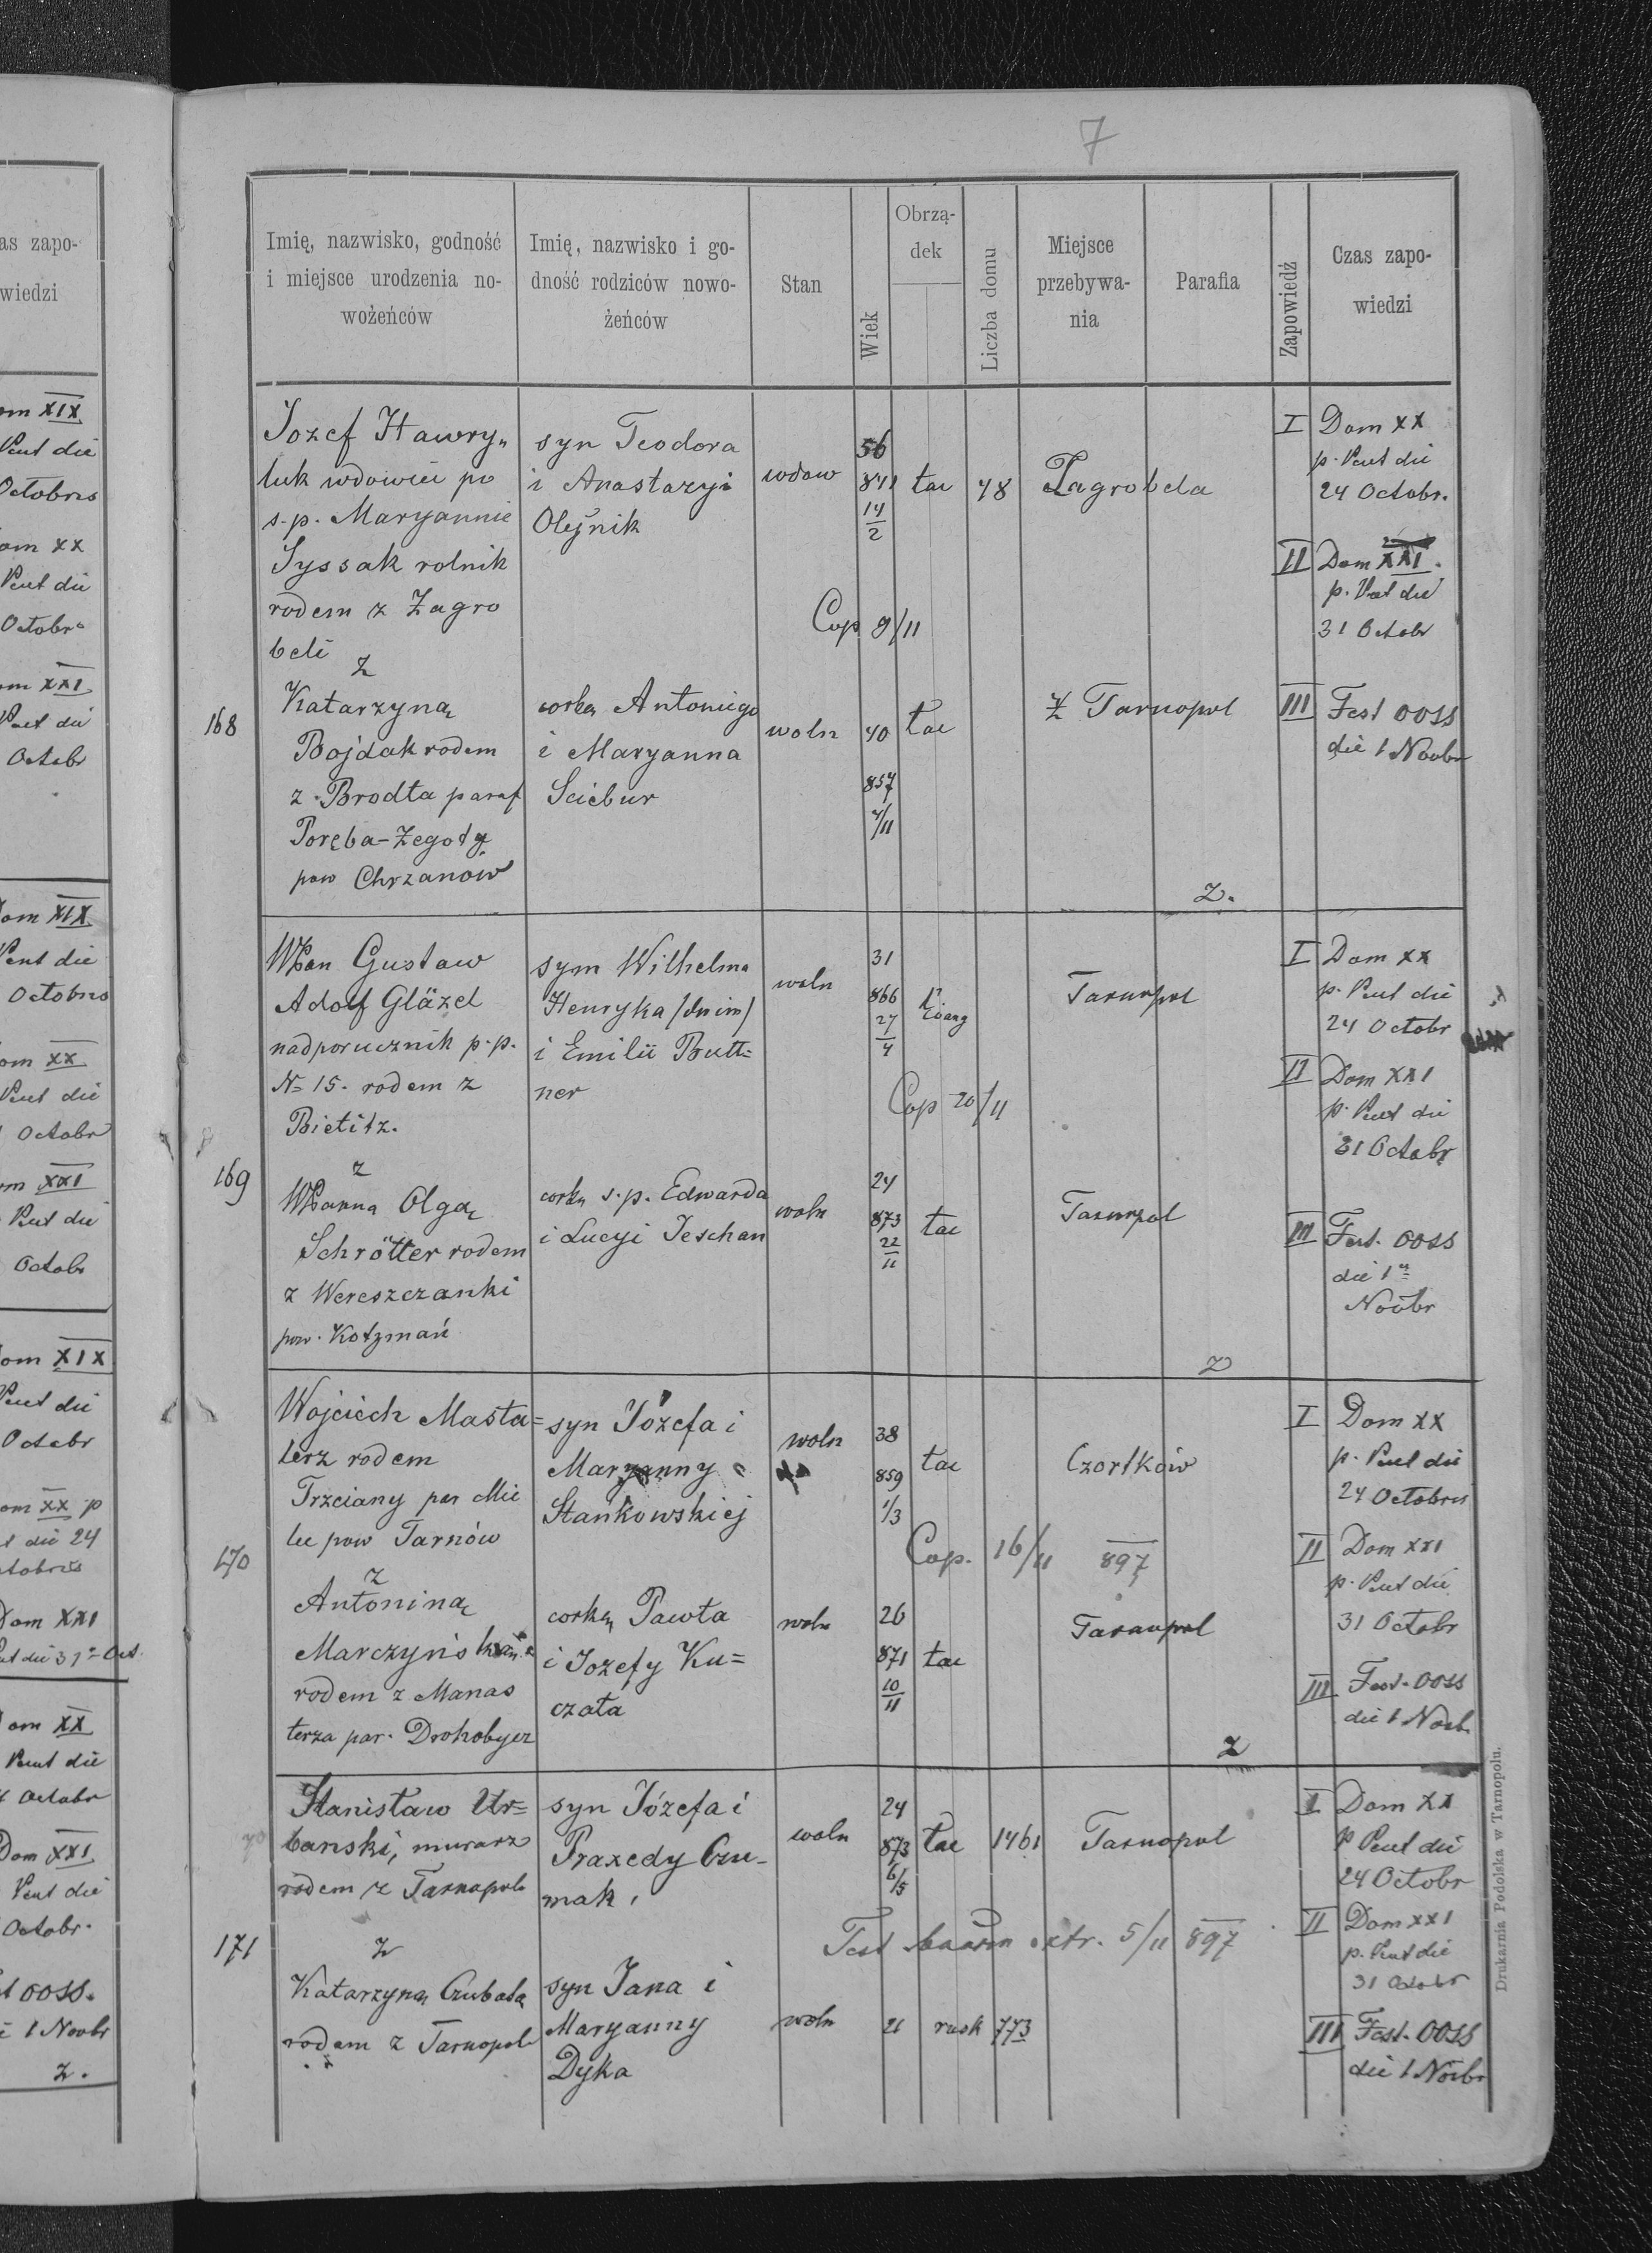 7
Imię, nazwisko, godność
i miejsce urodzenia no-
wożeńców
Imię, nazwisko i go-
dność rodziców nowo-
żeńców
Stan
Wiek
Obrzą-
dek
Liczba domu
Miejsce
przebywa-
nia
Parafia
Zapowiedź
Czas zapo-
wiedzi
168
Jozef Hawry„
luk wdowiec po
s.p. Maryannie
Syssak rolnik
rodem z Zagro
beli
z
Katarzyną
Bojdak rodem
z Brodła paraf
Poręba-Zegoty
pow Chrzanów
syn Teodora
i Anastazyi
Olejnik
corka Antoniego
i Maryanna
Sciebur
wdow
56
841
14
2
łac
48
Zagrobela
Cop 9/11
woln
40
857
4/11
łac
z Tarnopol
z.
I Dom XX
p. Pent die
24 Octobr.
II Dom XXI.
p. Pent die
31 Octobr
III Fest OOSS
die 1 Novbr
169
WPan Gustaw
Adolf Gläzel
nadporucznik p.p.
N= 15. rodem z
Bielitz.
z
WPanna Olgą
Schrötter rodem
z Wereszczanki
pow. Kotzmań
sym Wilhelma
Henryka
i Emilii Butt=
ner
corka s.p. Edwarda
i Lucyi Jeschan
woln
31
866
27
4
Evang
Tarnopol
Cop 20/11
woln
24
873
22
11
łac
Tarnopol
z
I Dom XX
p. Pent die
24 Octobr
II Dom XXI
p. Pent die
31 Octobr
III Fest. OOSS
die 1
Novbr
170
Wojciech Masta=
lerz rodem
Trzciany par Mie
lec pow Tarnów
z
Antoniną
Marczyńska
rodem z Manas
terza par. Drohobycz
syn Józefa i
Maryanny
Stankowskiej
corką Pawła
i Jozefy Ku=
czała
woln
38
859
1/3
łac
Czortków
Cop. 16/11 897
woln
26
871
10
11
łac
Tarnopol
z
I Dom XX
p. Pent die
24 Octobris
II Dom XXI
p. Pent die
31 Octobr
III Fest. OOSS
die 1 Novb.
171
Stanisław Ur=
banski, murarz
rodem z Tarnopola
z
Katarzyną Czubatą
rodem z Tarnopola
syn Józefa i
Praxedy Czu-
mak,
syn Jana i
Maryanny
Dyka
woln
24
873
6/5
łac
1461
Tarnopol
Test extr. 5/11 897
woln
21
rusk
773
I Dom XX
p Pent die
24 Octobr
II Dom XXI
p. Pent die
31 Octobr
III Fest. OOSS
die 1 Novbr
Drukarnia Podolska w Tarnopolu.